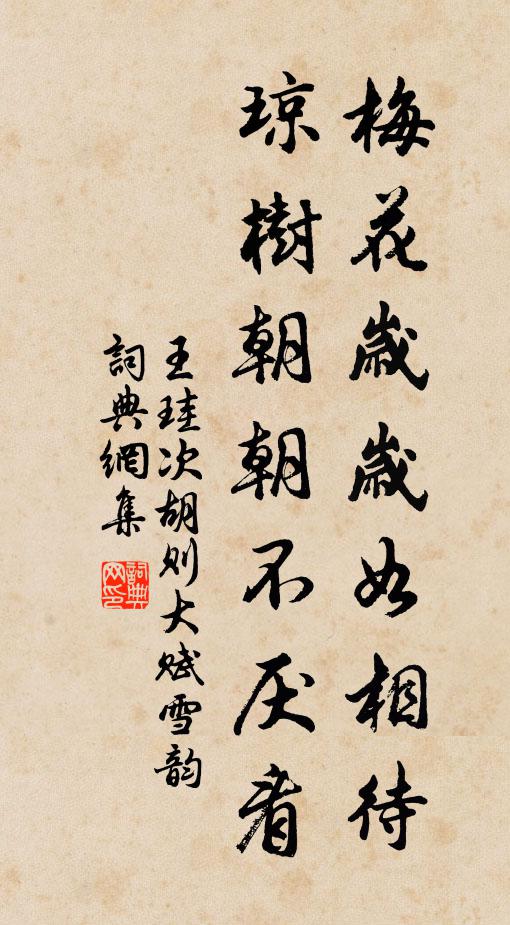 梅花歲歲如相待
琼樹朝朝不厌看
王珪次胡则大赋雪韵
詞典網集
詞典网印